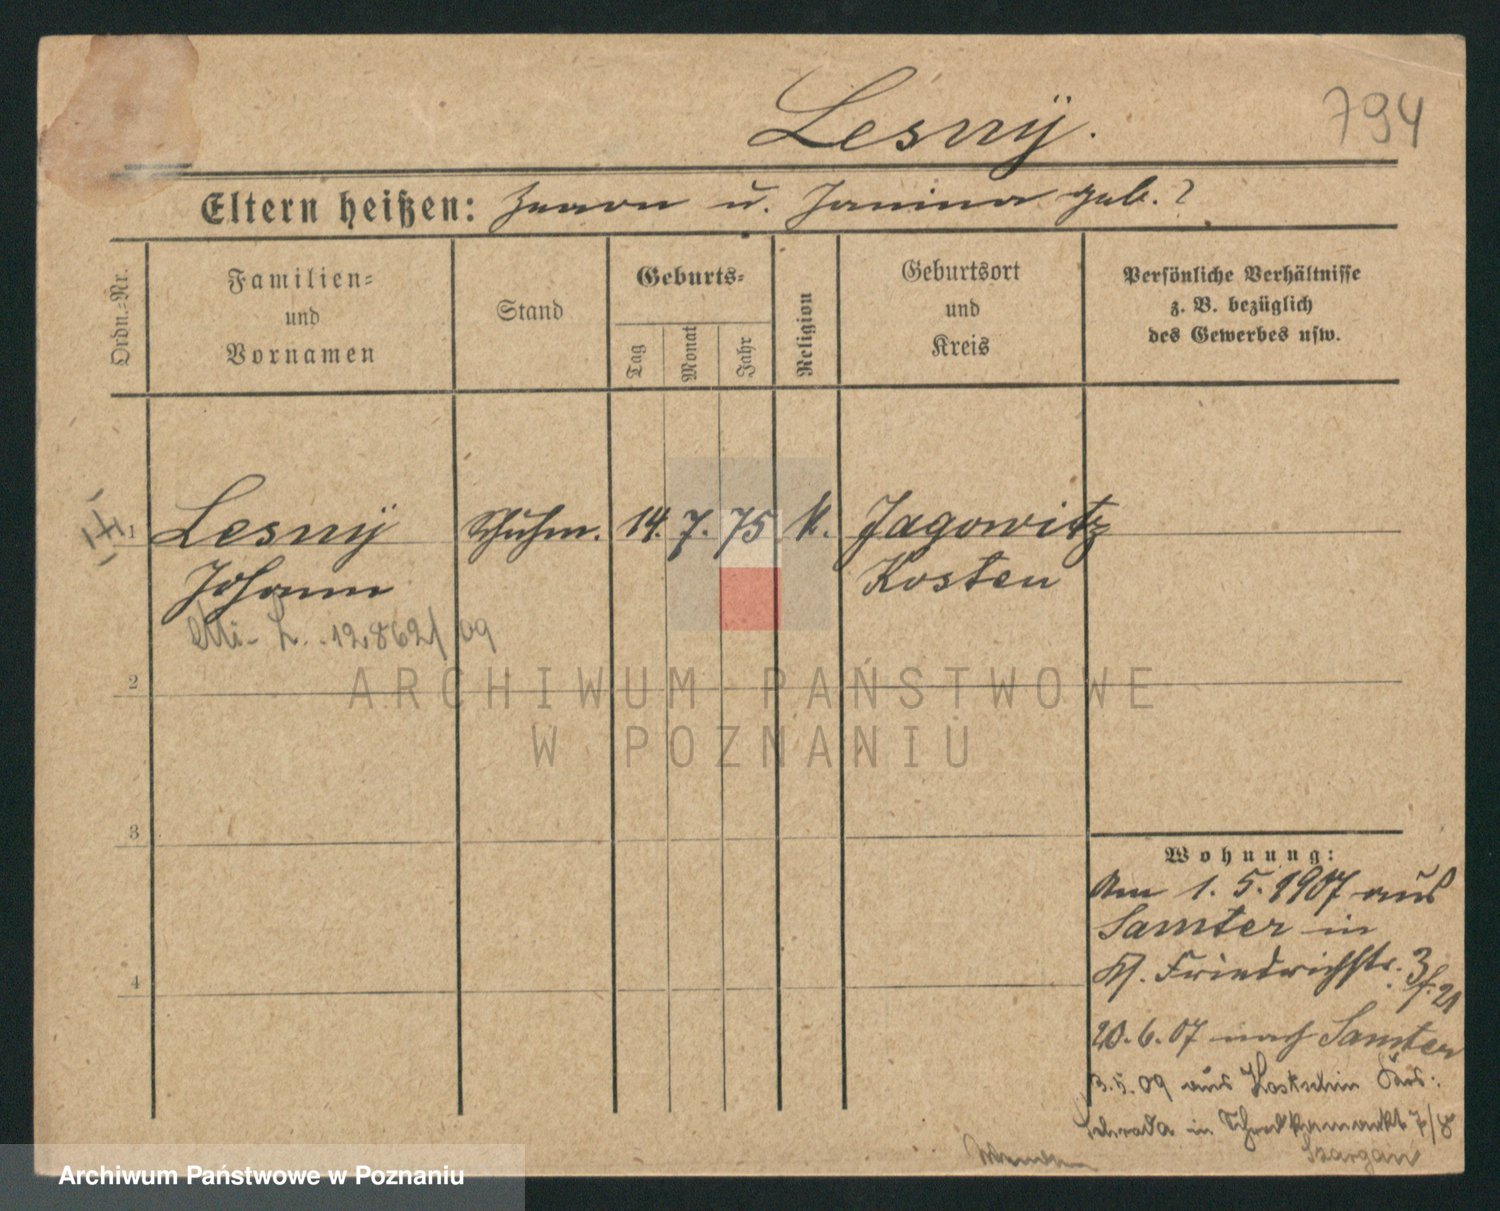 794
Lesnÿ.
Eltern heißen: u. Janina geb. ?
Ordn.-Nr.
Familien-
und
Vornamen
Stand
Geburts-
Tag
Monat
Jahr
Religion
Geburtsort
und
Kreis
Persönliche Verhältnisse
z. B. bezüglich
des Gewerbes usw.
1 Lesnÿ Schuhm. 14. 7. 75 k. Jagowitz
Johann Kosten
L. 12862/09
2
3
4
Wohnung:
Am 1. 5. 1907 aus
Samter in
Kl. Friedrichstr. 3
20. 6. 07 nach Samter
3.5.09 aus
Schroda in 7/8
ARCHIWUM PAŃSTWOWE
W POZNANIU
Archiwum Państwowe w Poznaniu